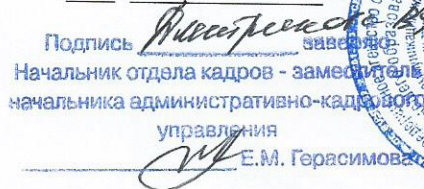 Подпись заверяю
Начальник отдела кадров - заместитель
начальника административно-кадрового
управления
Е.М. Герасимова